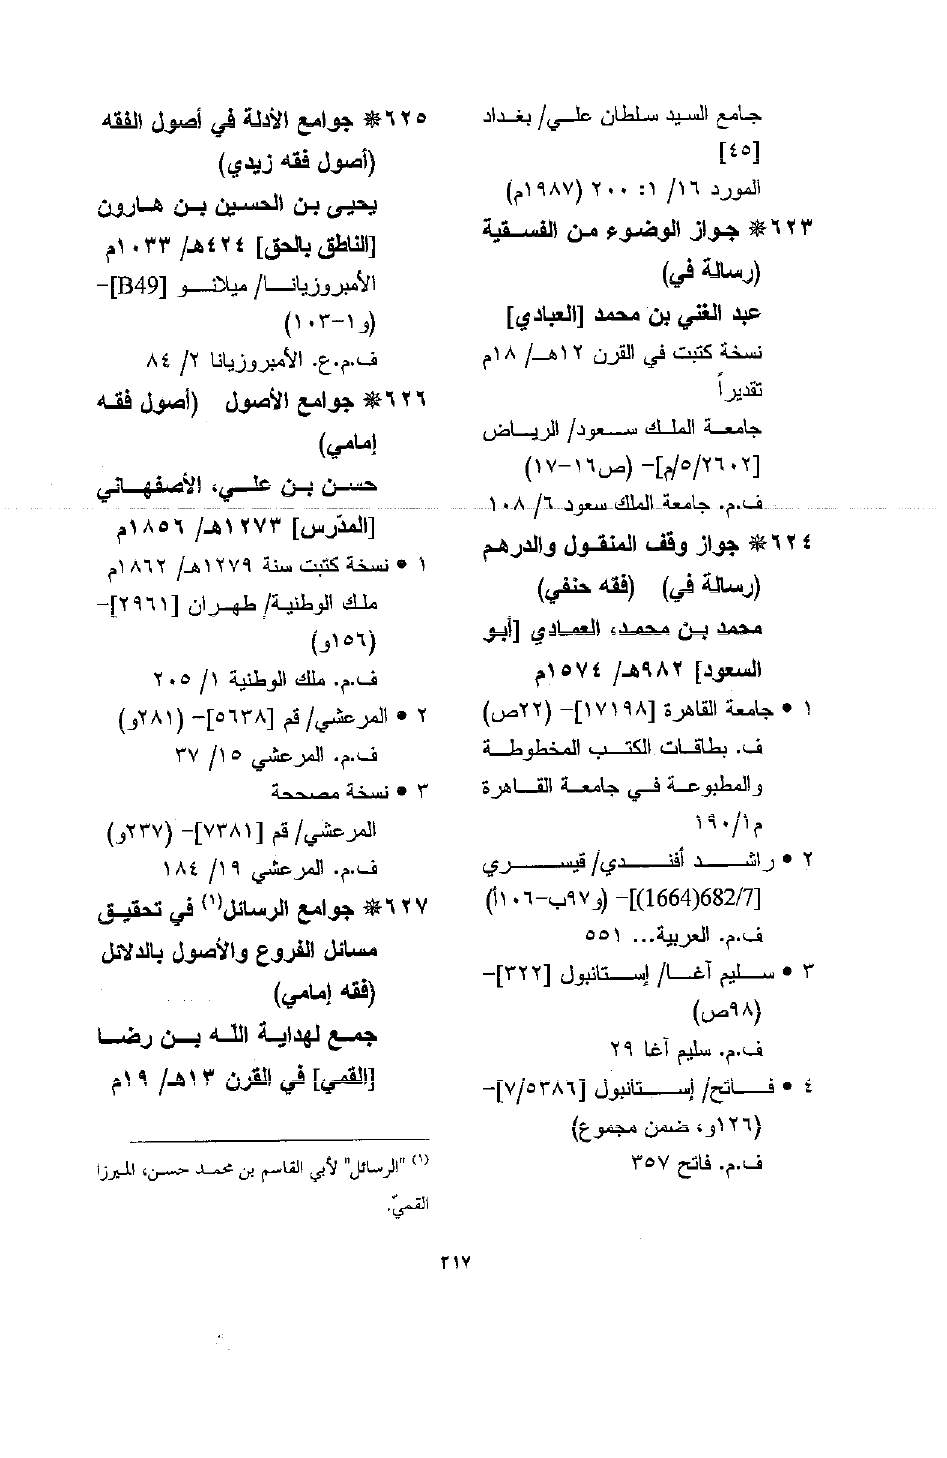 جامع السيد سلطان علي/ بغداد
[٤٥]
المورد ١٦/ ١: ٢٠٠ (١٩٨٧م)
٦٢٣* جواز الوضوء من الفسقية
(رسالة في)
عبد الغني بن محمد [العبادي]
نسخة كتبت في القرن ١٢هـ/ ١٨م
تقديراً
جامعة الملك سعود/ الرياض
[٢٦٠٢/٥/م]- (ص١٦-١٧)
ف.م. جامعة الملك سعود ٦/ ١٠٨
٦٢٤* جواز وقف المنقول والدرهم
(رسالة في) (فقه حنفي)
محمد بن محمد، العمادي [أبو
السعود] ٩٨٢هـ/ ١٥٧٤م
١ • جامعة القاهرة [١٧١٩٨]- (٢٢ص)
ف. بطاقات الكتب المخطوطة
والمطبوعة في جامعة القاهرة
م١/١٩٠
٢ • راشد أفندي/ قيسري
[682/7(1664)]- (و٩٧ب-١٠٦أ)
ف.م. العربية... ٥٥١
٣ • سليم آغا/ إستانبول [٣٢٢]-
(٩٨ص)
ف.م. سليم آغا ٢٩
٤ • فاتح/ إستانبول [٧/٥٣٨٦]-
(١٢٦و، ضمن مجموع)
ف.م. فاتح ٣٥٧
٦٢٥* جوامع الأدلة في أصول الفقه
(أصول فقه زيدي)
يحيى بن الحسين بن هارون
[الناطق بالحق] ٤٢٤هـ/ ١٠٣٣م
الأمبروزيانا/ ميلانو [B49]-
(و١-١٠٣)
ف.م.ع. الأمبروزيانا ٢/ ٨٤
٦٢٦* جوامع الأصول (أصول فقه
إمامي)
حسن بن علي، الأصفهاني
[المدّرس] ١٢٧٣هـ/ ١٨٥٦م
١ • نسخة كتبت سنة ١٢٧٩هـ/ ١٨٦٢م
ملك الوطنية/ طهران [٢٩٦١]-
(١٥٦و)
ف.م. ملك الوطنية ١/ ٢٠٥
٢ • المرعشي/ قم [٥٦٣٨]- (٢٨١و)
ف.م. المرعشي ١٥/ ٣٧
٣ • نسخة مصححة
المرعشي/ قم [٧٣٨١]- (٢٣٧و)
ف.م. المرعشي ١٩/ ١٨٤
٦٢٧* جوامع الرسائل(١) في تحقيق
مسائل الفروع والأصول بالدلائل
(فقه إمامي)
جمع لهداية الله بن رضا
[القمي] في القرن ١٣هـ/ ١٩م
(١) "الرسائل" لأبي القاسم بن محمد حسن، الميرزا
القميّ.
٢١٧